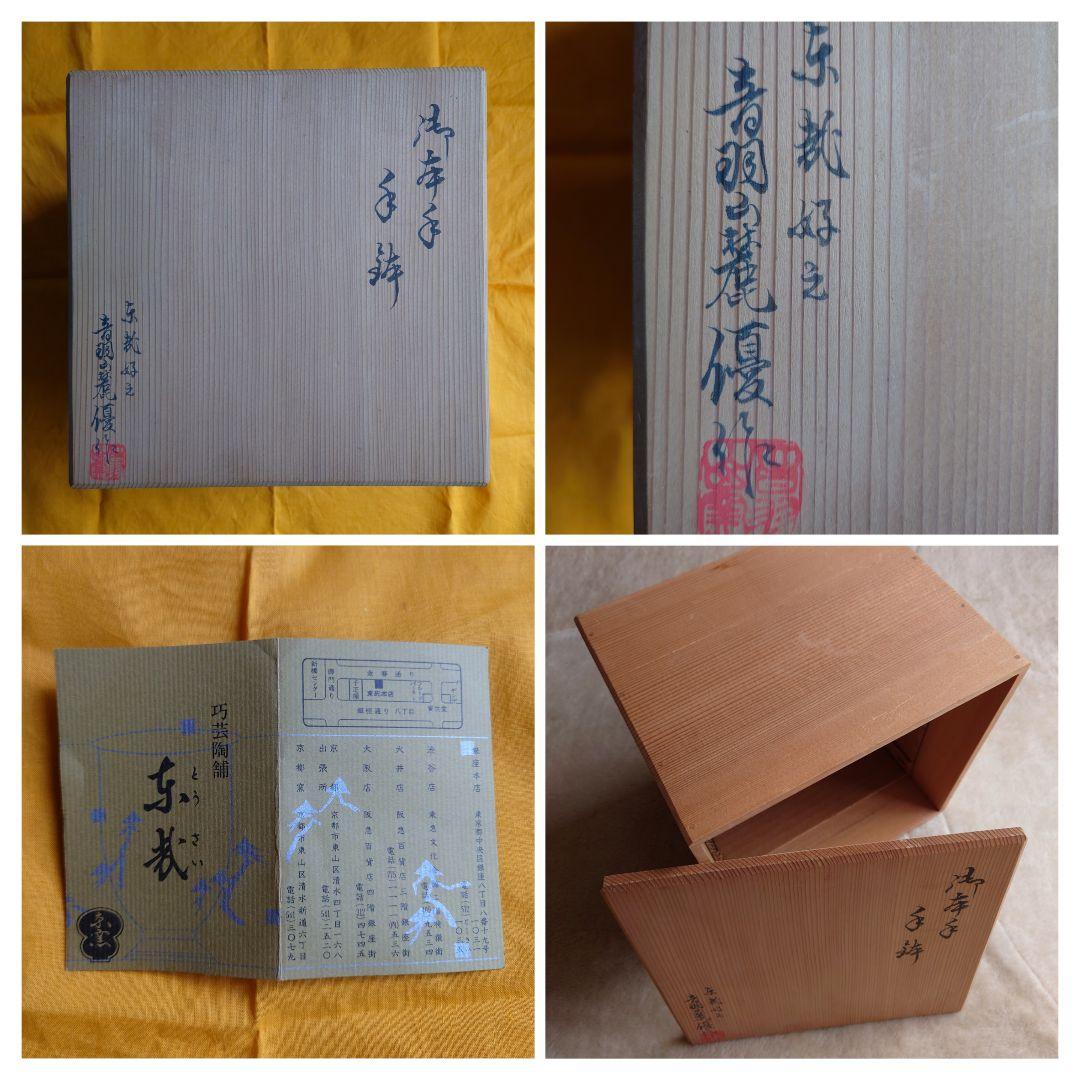 御本手
手鉢
东哉好之
音羽山麓優作
东哉好之
音羽山麓優作
巧芸陶舗
とうさい
东哉
金春通り
御門通り
新橋センター
東哉本店
銀座通り 八丁目
銀座本店 東京都中央区銀座八丁目八番十九号
渋谷店 東急文化
大井店 阪急百貨店三階銀座街
大阪店 阪急百貨店四階銀座街
電話(312)四七四五
京都出張所 京都市東山区清水四丁目一六八
電話(541)三五二〇
京都窯 京都市東山区清水新道六丁目
電話(541)三〇七九
御本手
手鉢
东哉好之
音羽山麓優